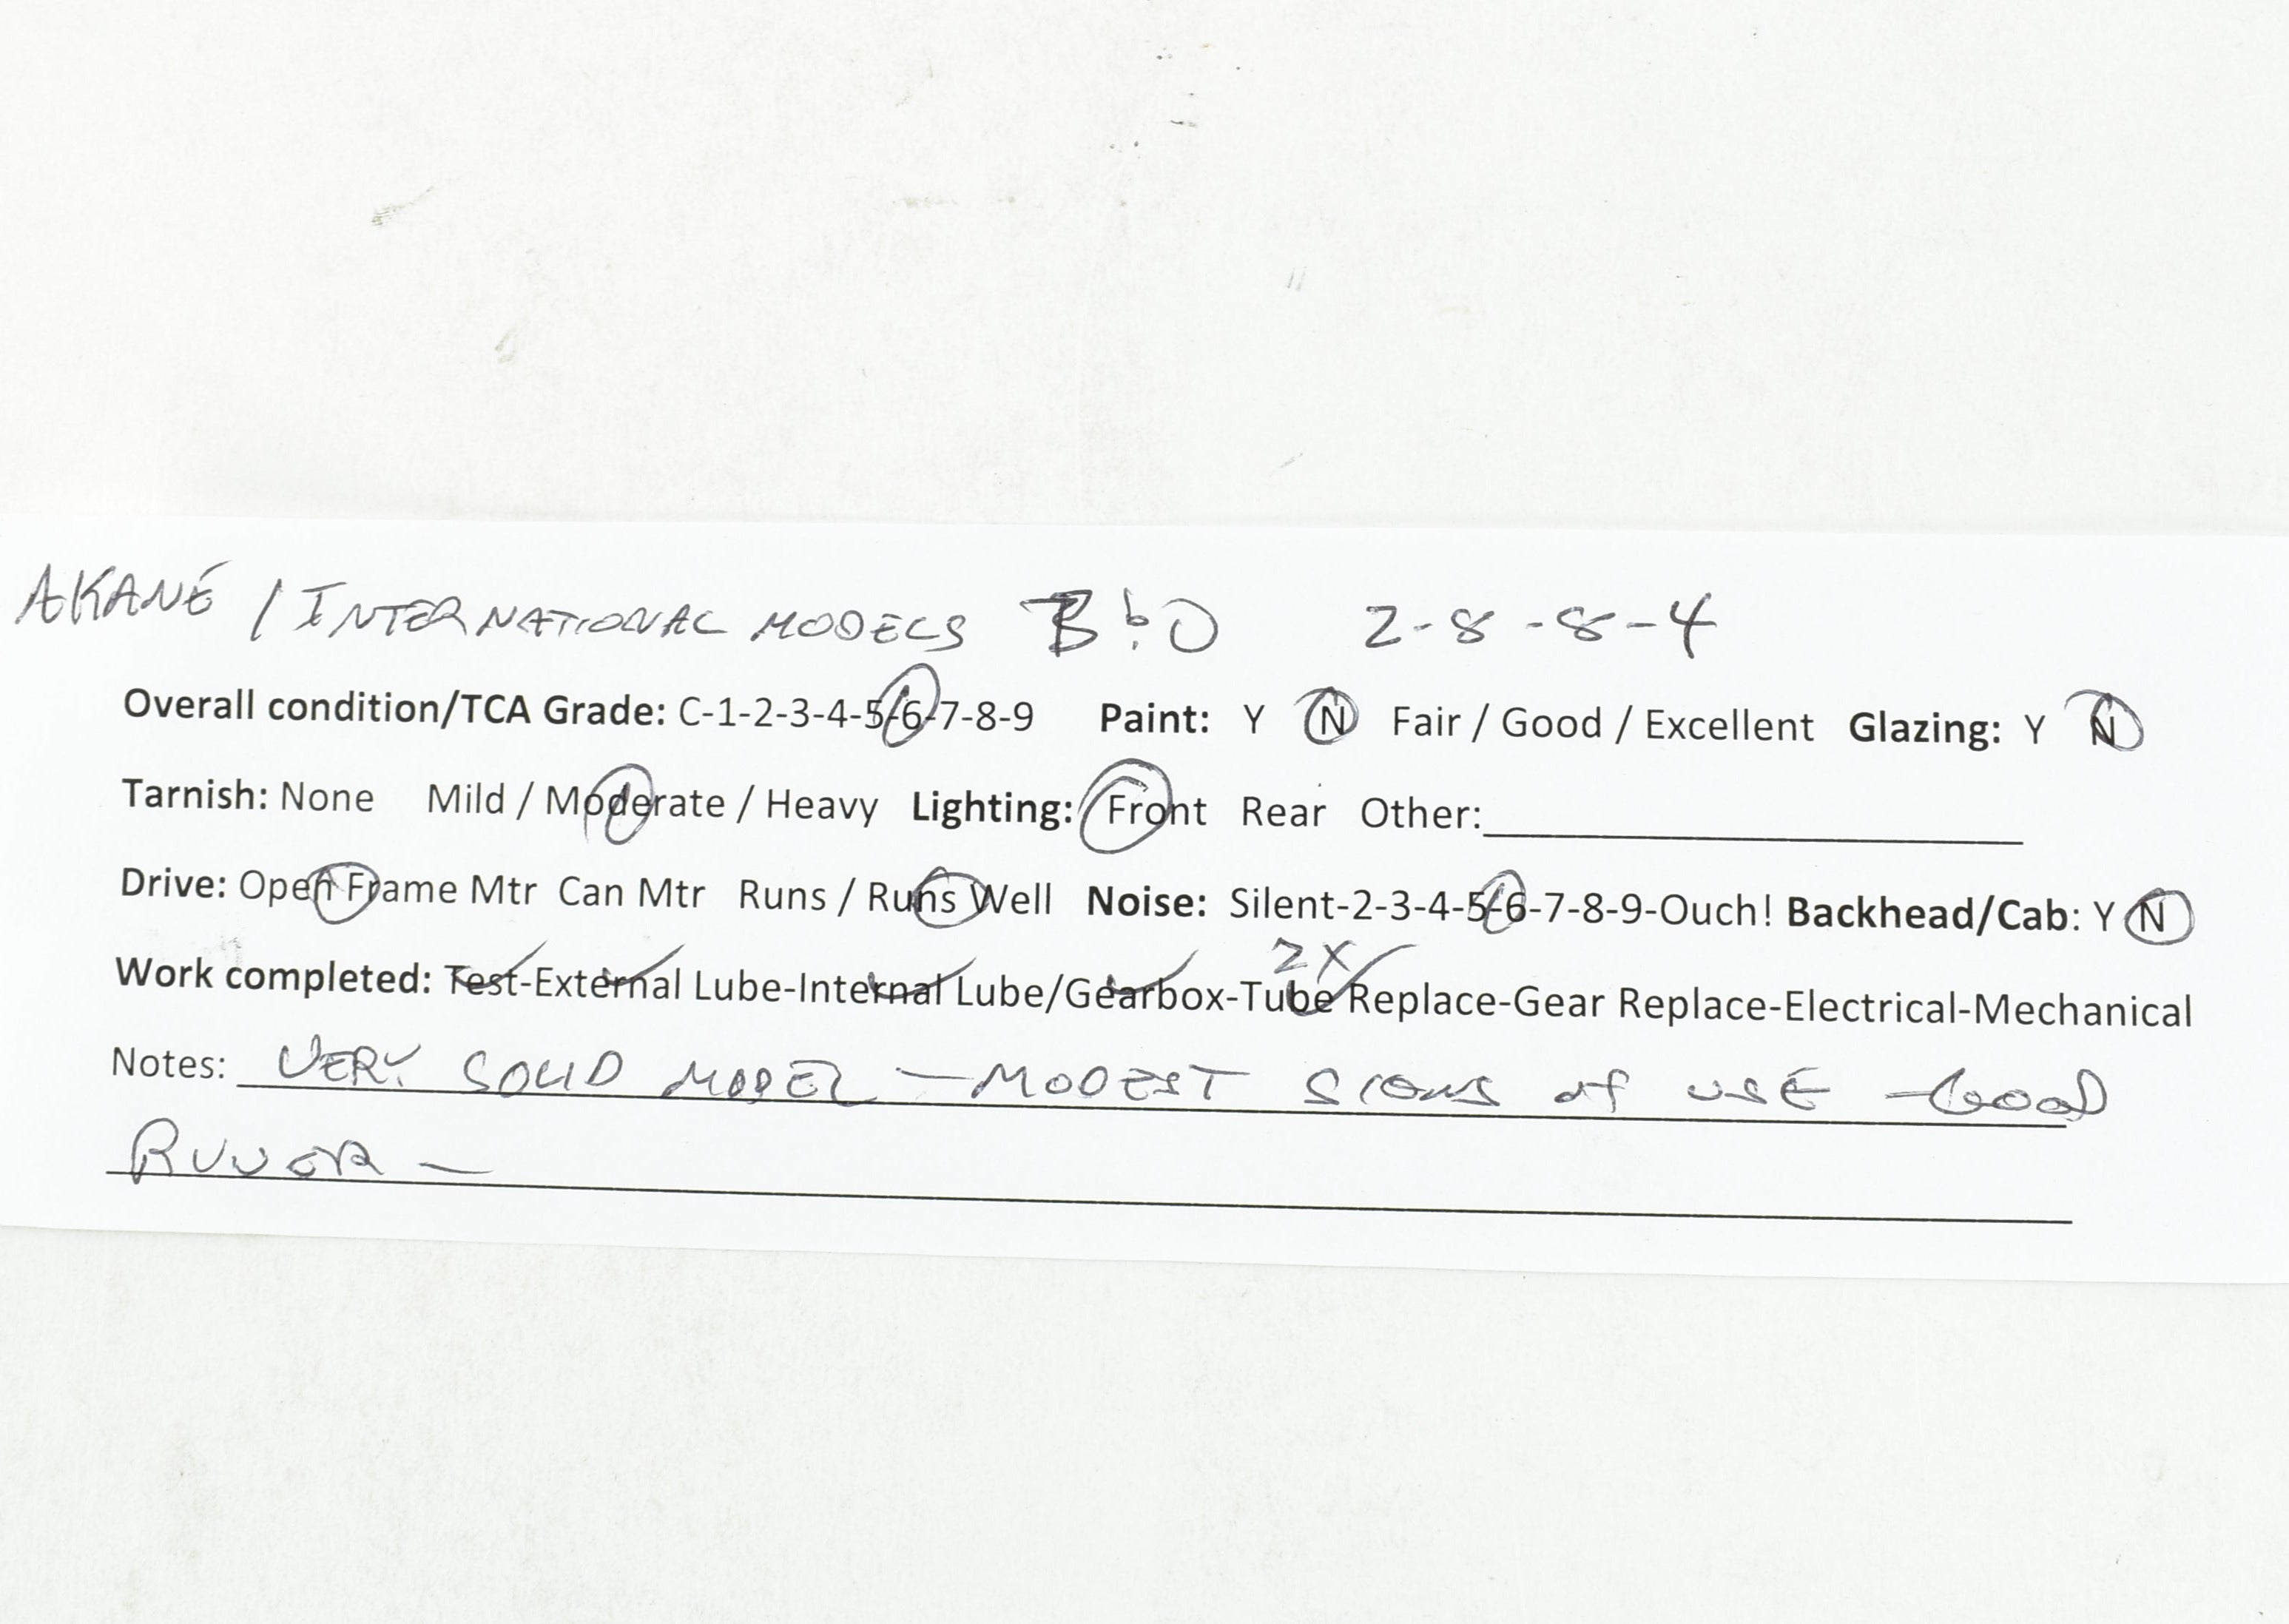 AKANÉ / INTERNATIONAL MODELS B&O 2-8-8-4
Overall condition/TCA Grade: C-1-2-3-4-5-6-7-8-9 Paint: Y N Fair / Good / Excellent Glazing: Y N
Tarnish: None Mild / Moderate / Heavy Lighting: Front Rear Other:
Drive: Open Frame Mtr Can Mtr Runs / Runs Well Noise: Silent-2-3-4-5-6-7-8-9-Ouch! Backhead/Cab: Y N
2X
Work completed: Test-External Lube-Internal Lube/Gearbox-Tube Replace-Gear Replace-Electrical-Mechanical
Notes: VERY SOLID MODEL - MODEST SIGNS of USE - Good
RUNNER -